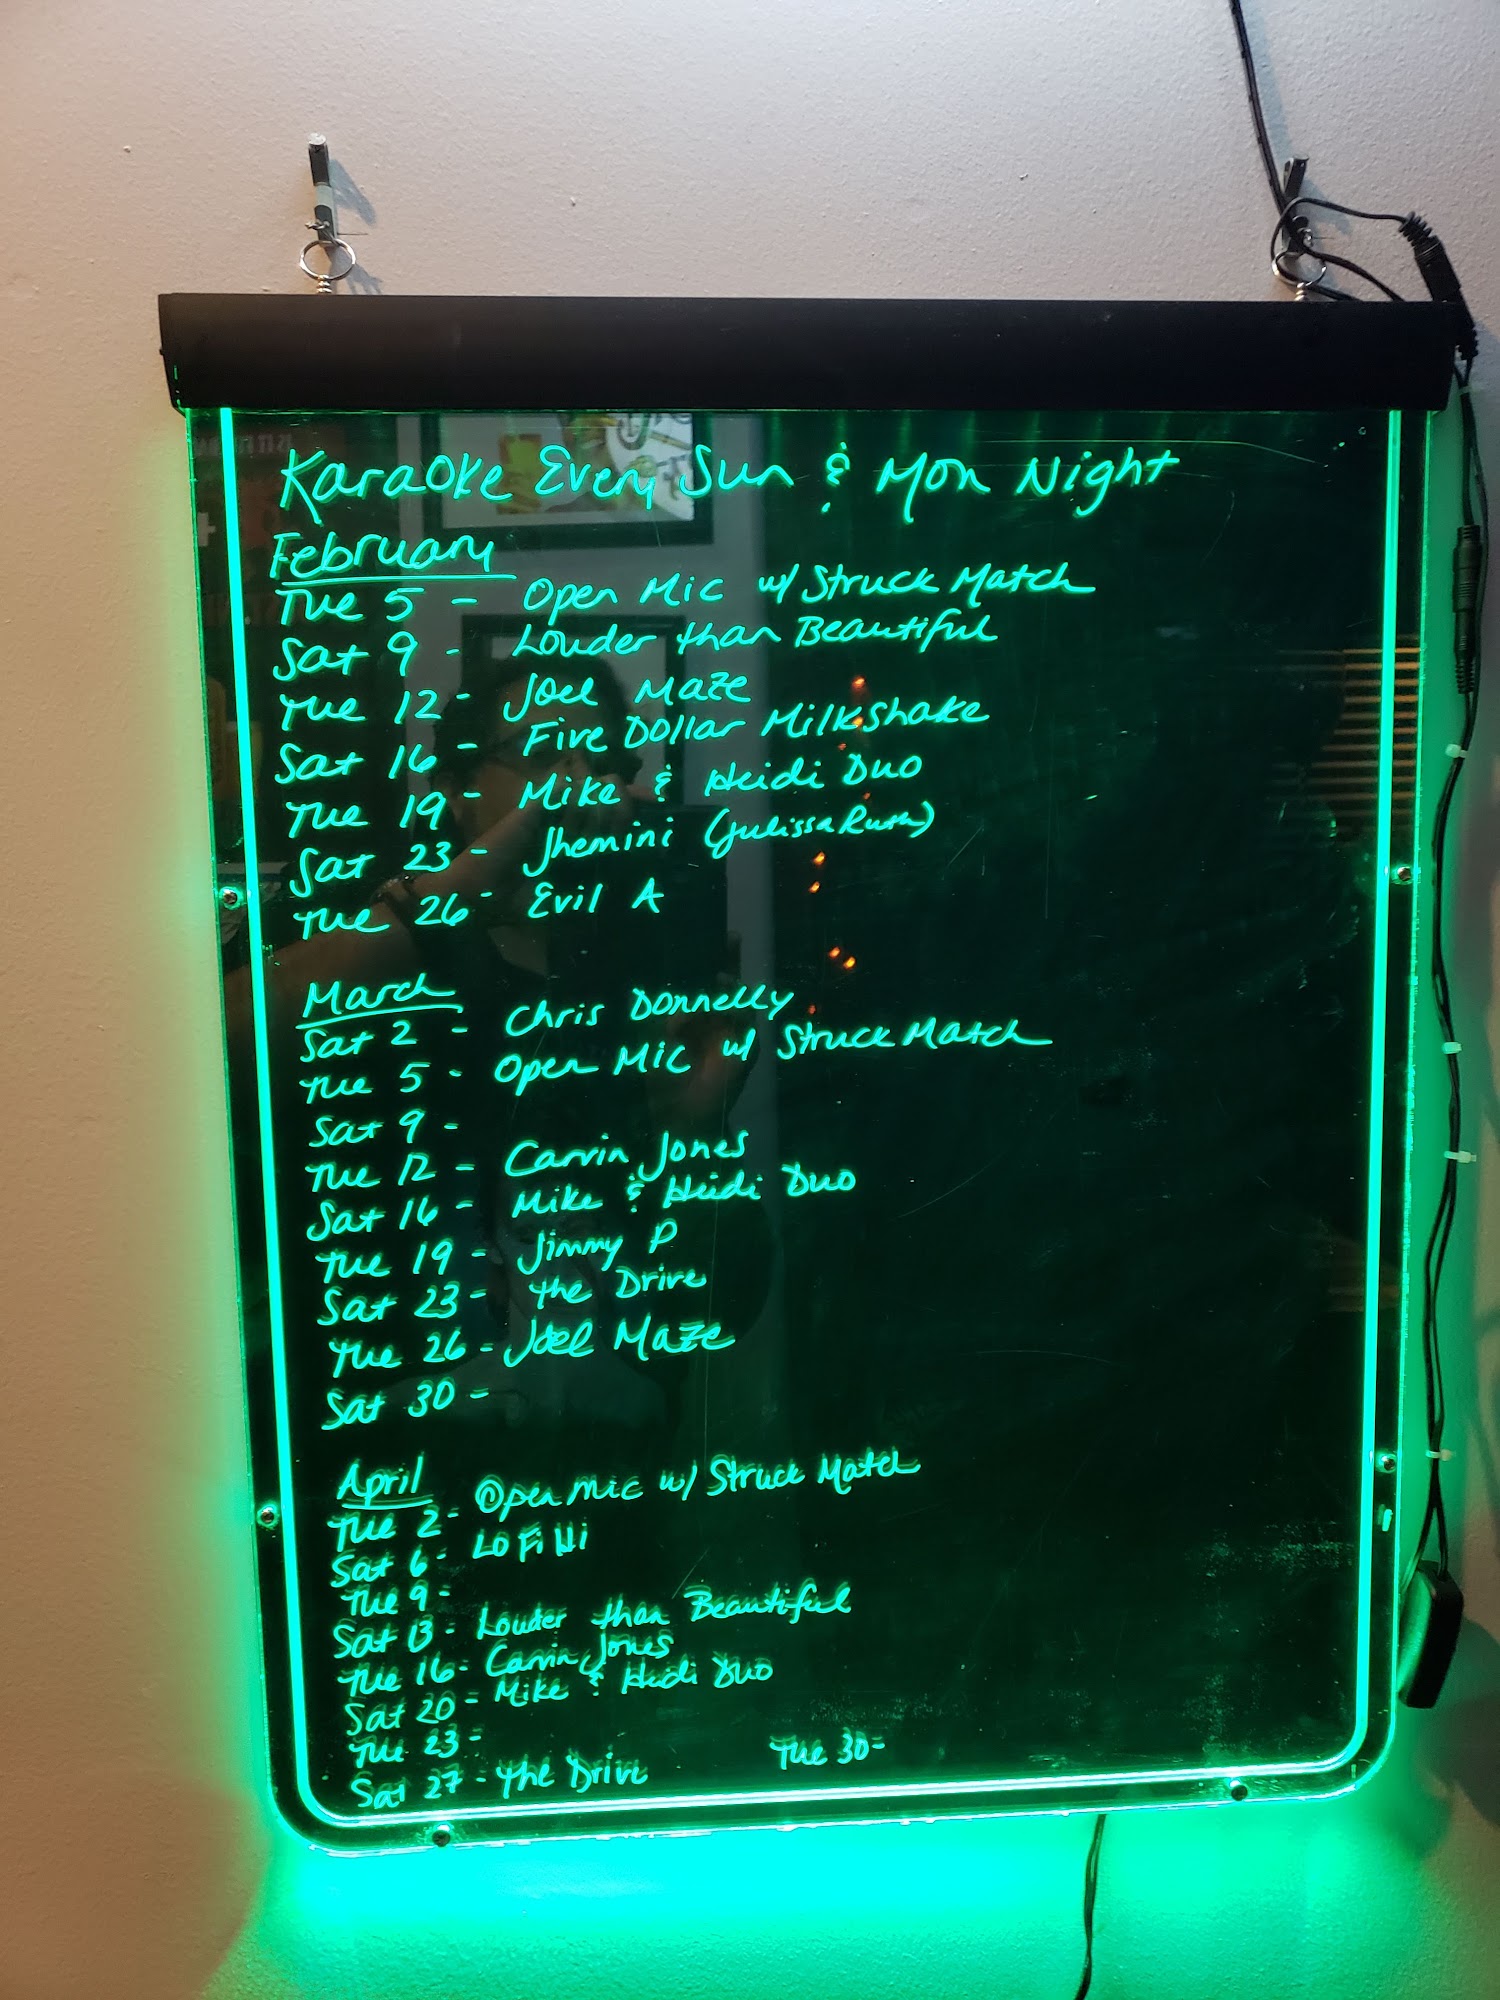 Karaoke Every Sun & Mon Night
February
Tue 5 - Open Mic w/ Struck Match
Sat 9 - Louder than Beautiful
Tue 12 - Joel Maze
Sat 16 - Five Dollar Milkshake
Tue 19 - Mike & Heidi Duo
Sat 23 - Jhemini (Julissa Ruth)
Tue 26 - Evil A
March
Sat 2 - Chris Donnelly
Tue 5 - Open Mic w/ Struck Match
Sat 9 -
Tue 12 - Carvin Jones
Sat 16 - Mike & Heidi Duo
Tue 19 - Jimmy P
Sat 23 - The Drive
Tue 26 - Joel Maze
Sat 30 -
April
Tue 2 - Open Mic w/ Struck Match
Sat 6 - LoFi Hi
Tue 9 -
Sat 13 - Louder than Beautiful
Tue 16 - Carvin Jones
Sat 20 - Mike & Heidi Duo
Tue 23 -
Sat 27 - The Drive
Tue 30 -